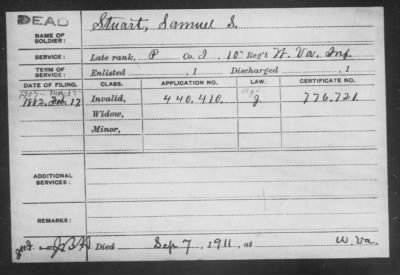 DEAD
NAME OF SOLDIER: Stuart, Samuel S.
SERVICE: Late rank, P Co. I, 10" Reg't W. Va. Inf.
TERM OF SERVICE: Enlisted , 1 Discharged , 1
DATE OF FILING. CLASS. APPLICATION NO. LAW. CERTIFICATE NO.
1882, Feb. 17 Invalid, 440.410. 776.721.
Widow,
Minor,
ADDITIONAL SERVICES:
REMARKS:
Died Sep 7, 1911, at W. Va.